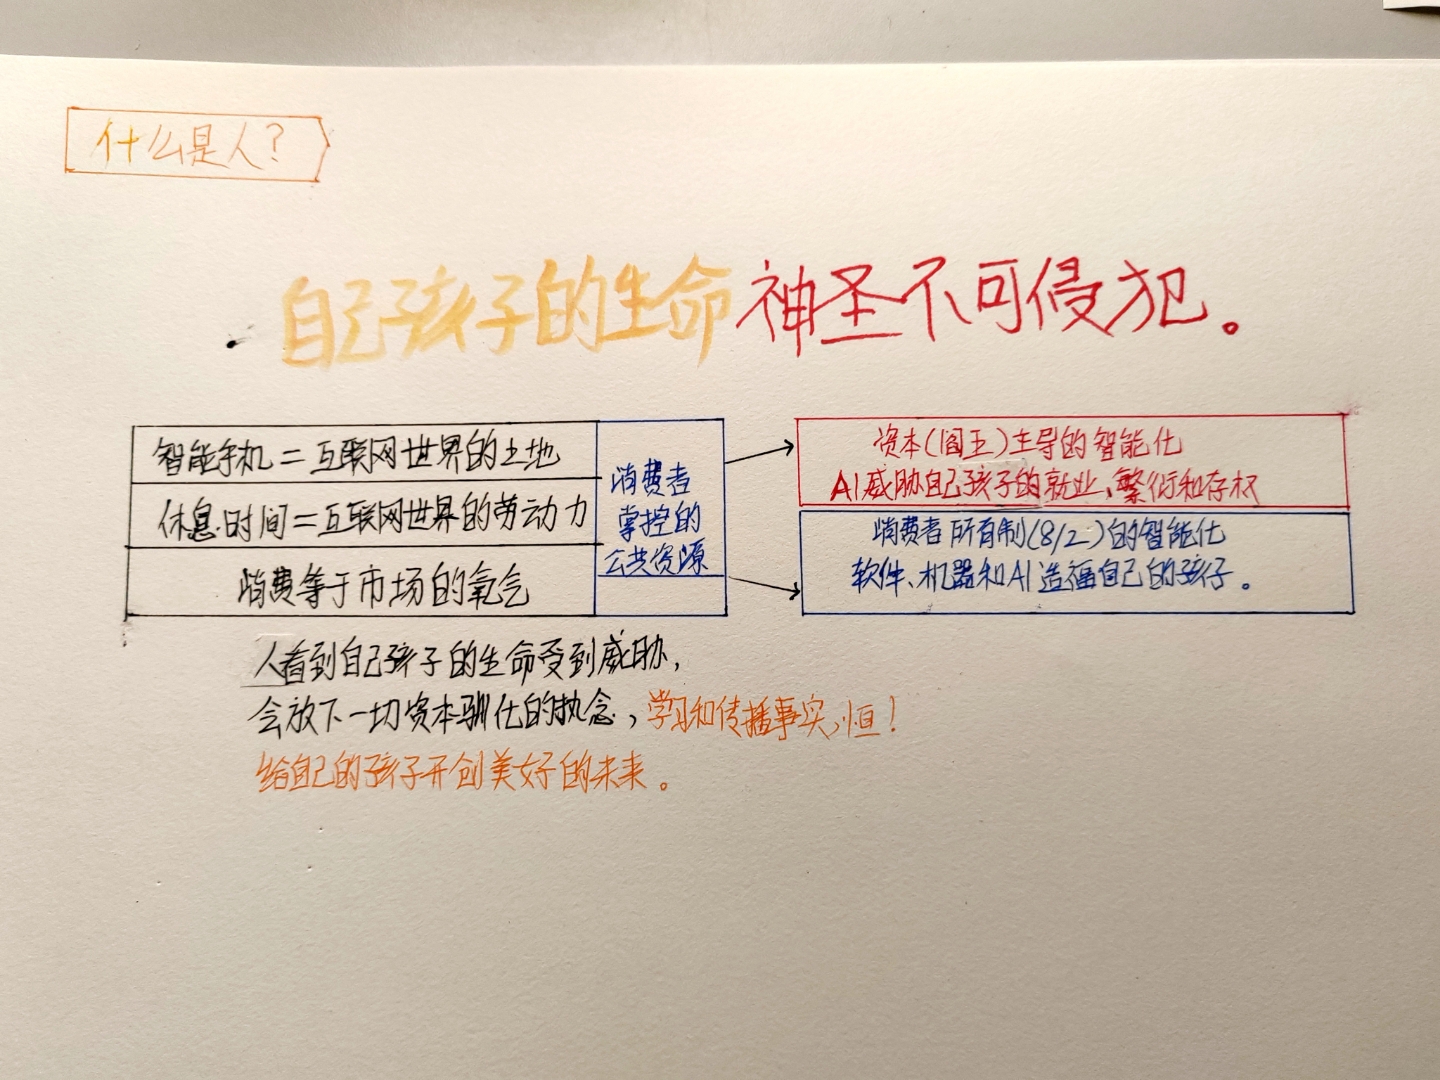 什么是人?
自己孩子的生命神圣不可侵犯。
智能手机=互联网世界的土地
休息时间=互联网世界的劳动力
消费等于市场的氧气
消费者
掌控的
公共资源
资本(阎王)主导的智能化
AI威胁自己孩子的就业、繁衍和存权
消费者所有制(8/2)的智能化
软件、机器和AI造福自己的孩子。
人看到自己孩子的生命受到威胁,
会放下一切资本驯化的执念,学习和传播事实,恒!
给自己的孩子开创美好的未来。